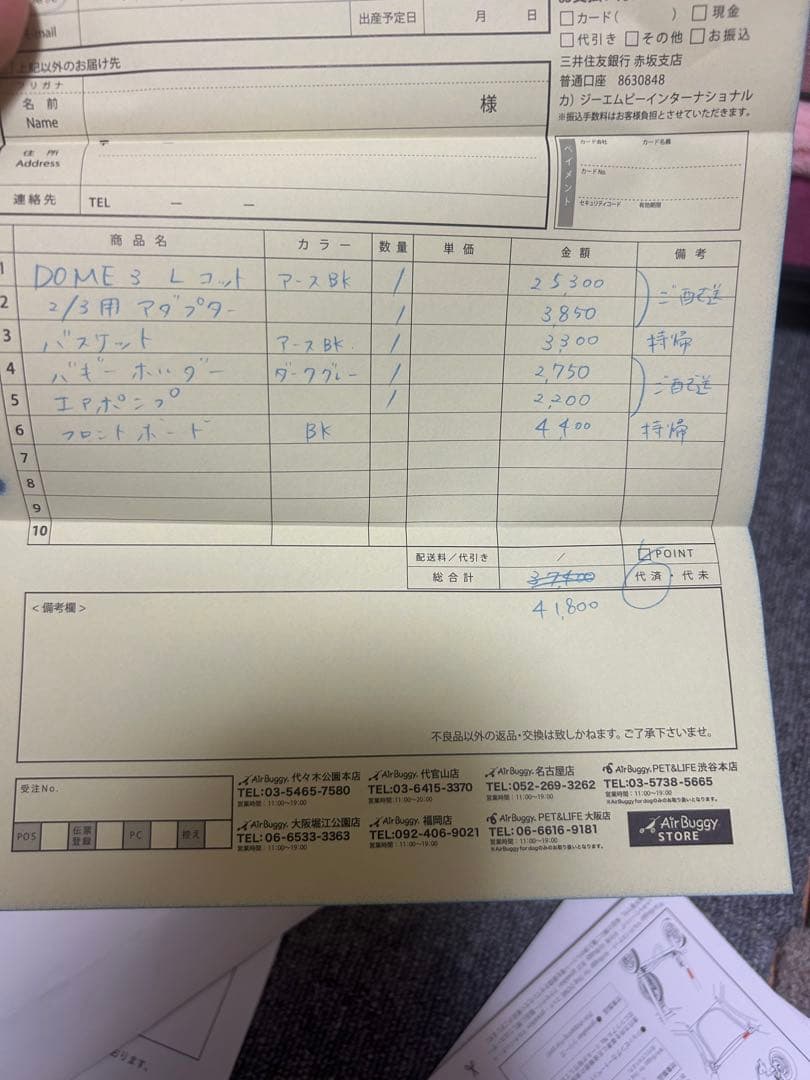 E-mail
出産予定日 月 日
□カード( ) □現金
□代引き □その他 □お振込
三井住友銀行 赤坂支店
普通口座 8630848
カ)ジーエムピーインターナショナル
※振込手数料はお客様負担とさせていただきます。
上記以外のお届け先
フリガナ
名前
Name
様
住所
Address
〒
連絡先 TEL — —
ペイメント
カード会社 カード名義
カードNo.
セキュリティコード 有効期限
商品名 カラー 数量 単価 金額 備考
1 DOME 3 L コット アースBK 1 25,300 ご配送
2 2/3用 アダプター 1 3,850
3 バスケット アースBK. 1 3,300 持帰
4 バギーホルダー ダークグレー 1 2,750 ご配送
5 エアポンプ 1 2,200
6 フロントボード BK 4,400 持帰
7
8
9
10
配送料/代引き / POINT
総合計 37,400 代済・代未
41,800
<備考欄>
不良品以外の返品・交換は致しかねます。ご了承下さいませ。
受注No.
POS 伝票登録 PC 控え
AirBuggy. 代々木公園本店
TEL:03-5465-7580
営業時間:11:00〜19:00
AirBuggy. 代官山店
TEL:03-6415-3370
営業時間:11:00〜20:00
AirBuggy. 名古屋店
TEL:052-269-3262
営業時間:11:00〜19:00
AirBuggy. PET&LIFE 渋谷本店
TEL:03-5738-5665
営業時間:11:00〜19:00
※AirBuggy for dogのみのお取り扱いとなります。
AirBuggy. 大阪堀江公園店
TEL:06-6533-3363
営業時間:11:00〜19:00
AirBuggy. 福岡店
TEL:092-406-9021
営業時間:11:00〜19:00
AirBuggy. PET&LIFE 大阪店
TEL:06-6616-9181
営業時間:11:00〜19:00
※AirBuggy for dogのみのお取り扱いとなります。
AirBuggy
STORE
おります。